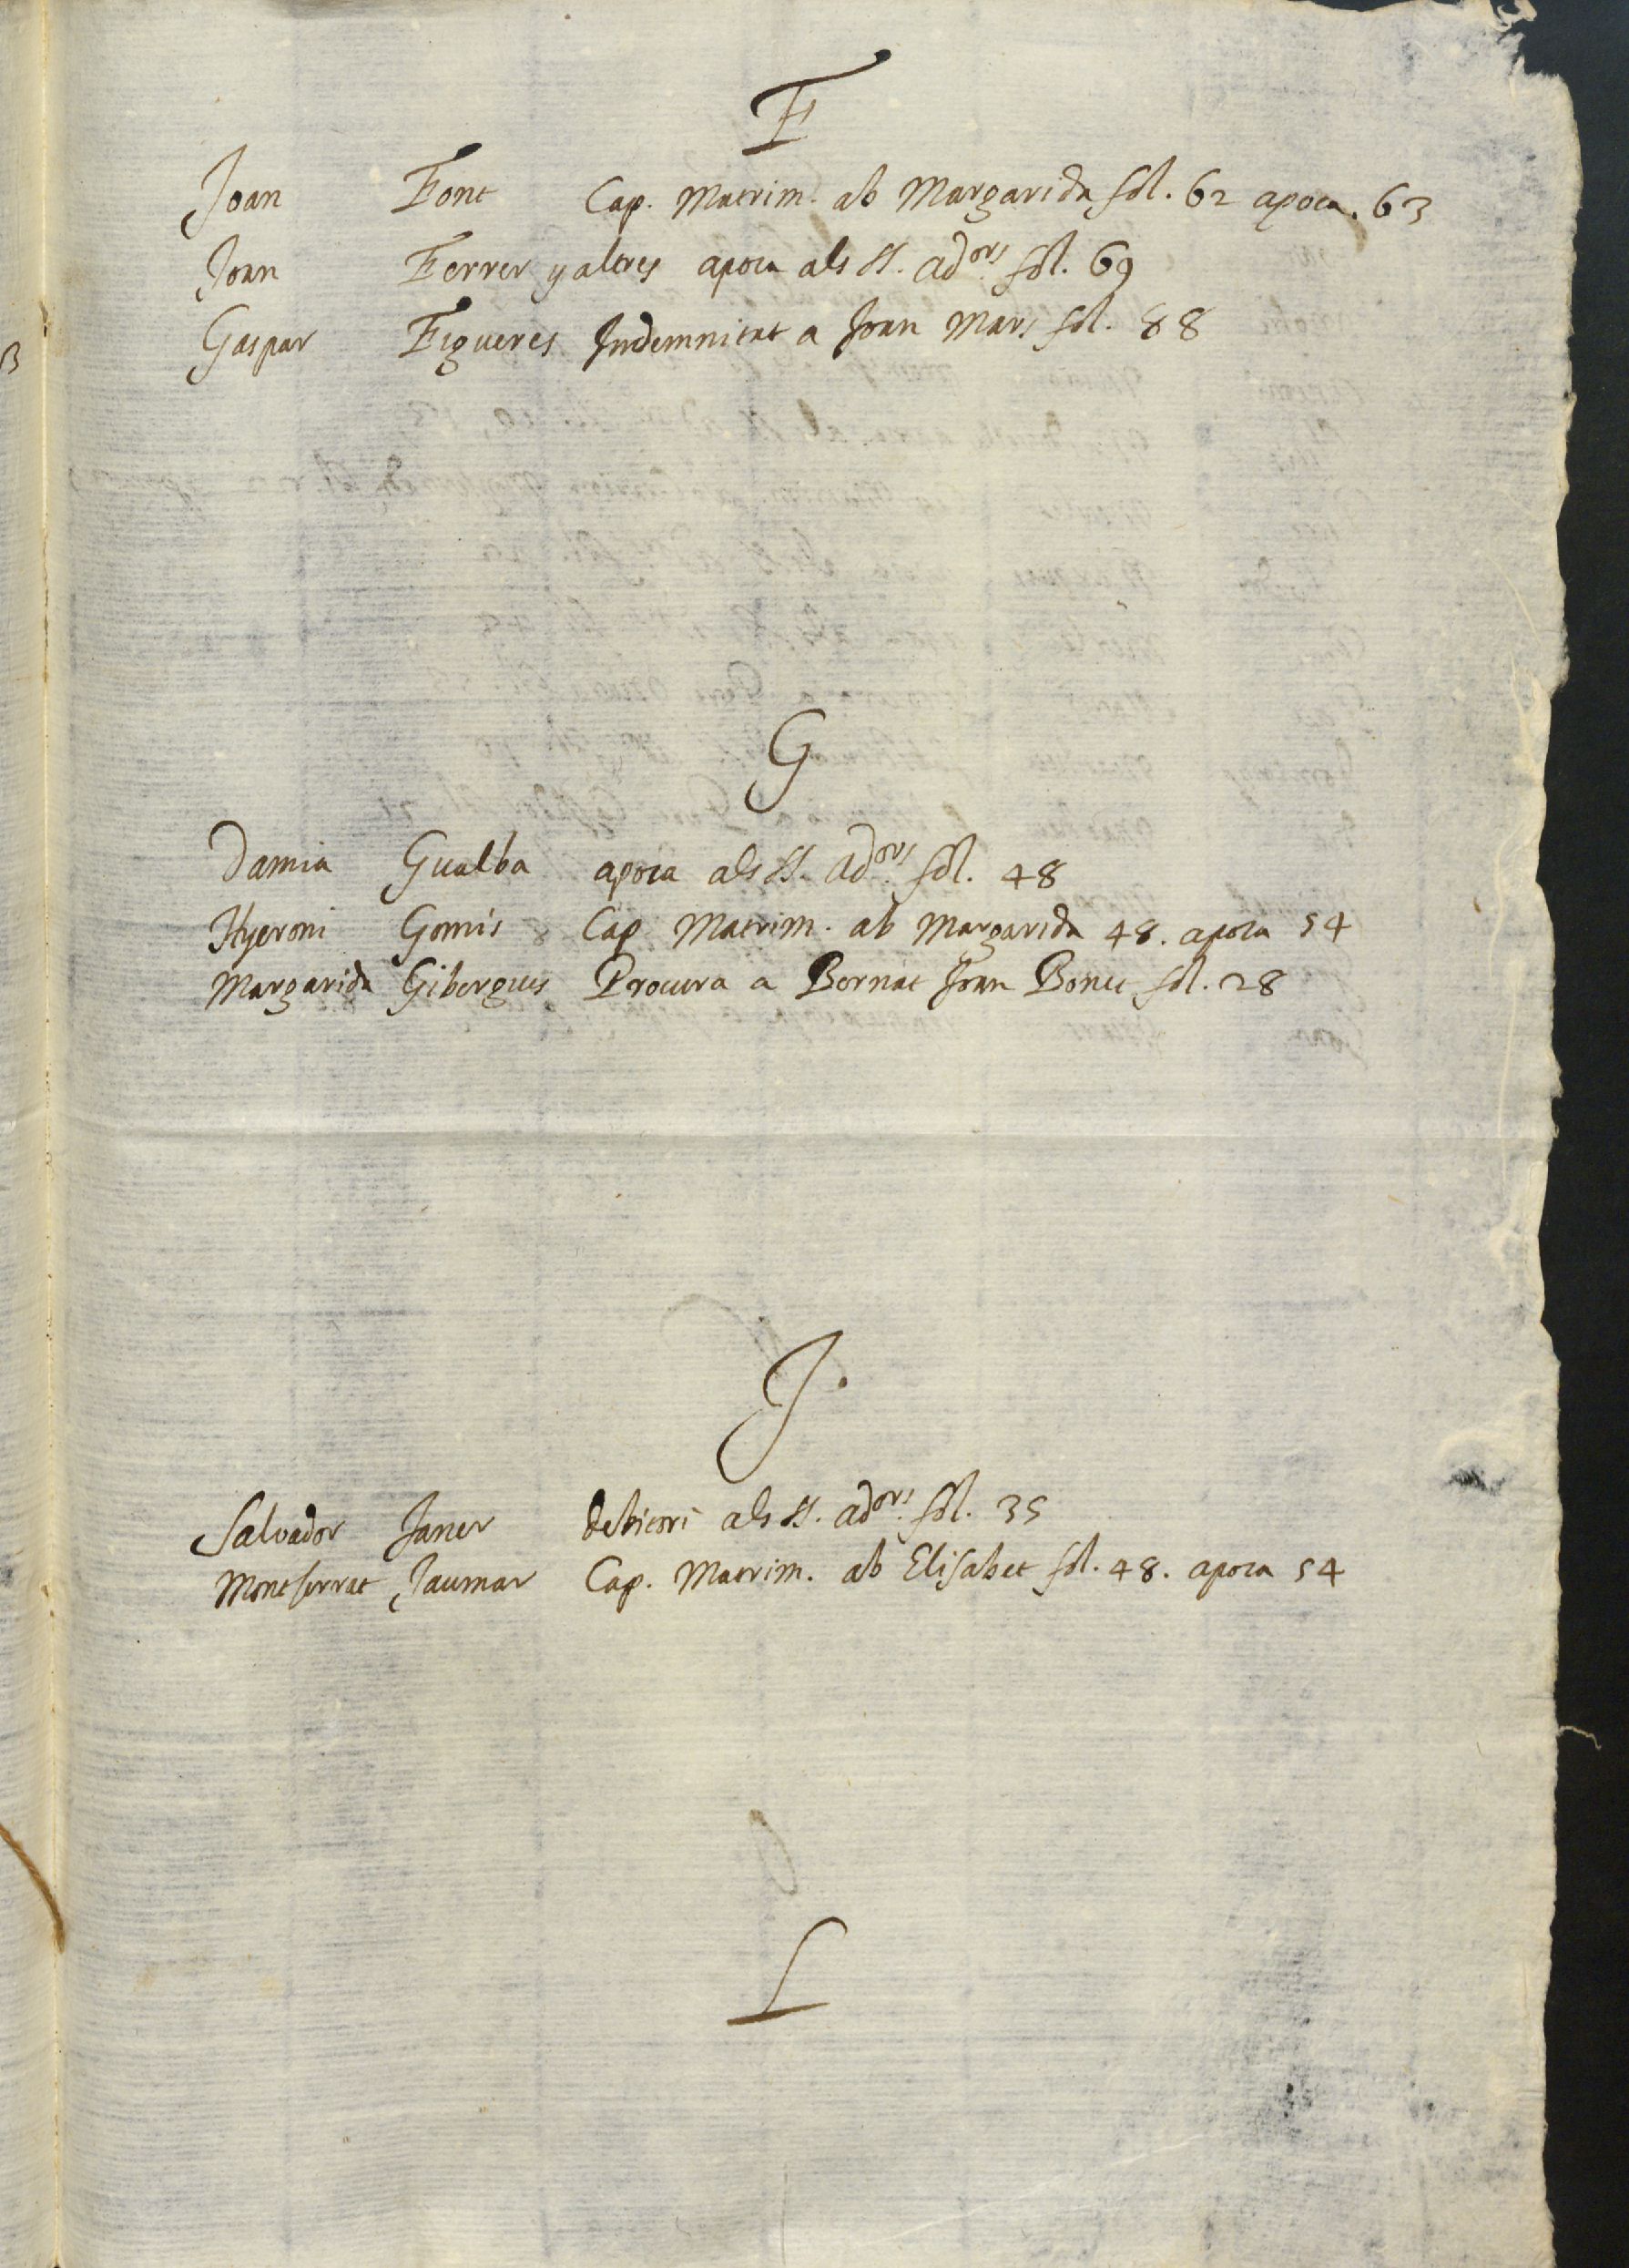 F
Joan Font Cap. Matrim. ab Margarida fol. 62 apoca. 63
Joan Ferrer y altres apoca als SS. adors fol. 69
Gaspar Figueres Indemnitat a Joan Mars fol. 88
G
Damia Gualba apoca als SS. adors fol. 48
Hyeroni Gomis Cap Matrim. ab Margarida 48. apoca 54
Margarida Gibergues Procura a Bernat Joan Bonet fol. 28
J.
Salvador Janer debitori als SS. adors fol. 35
Montserrat Jaumar Cap. Matrim. ab Elisabet fol. 48. apoca 54
L